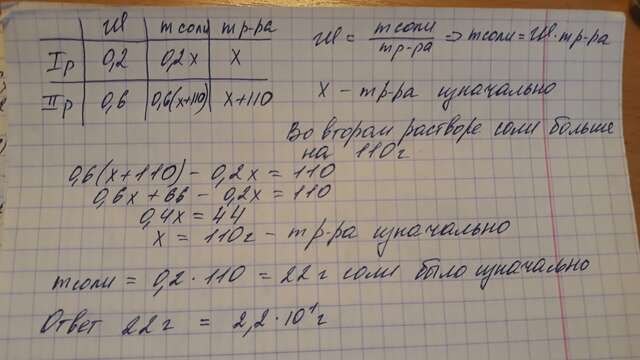 W m соли m р-ра
I р 0,2 0,2x x
II р 0,6 0,6(x+110) x+110
W = m соли / m р-ра => m соли = W · m р-ра
x – m р-ра изначально
Во втором растворе соли больше
на 110 г
0,6(x+110) – 0,2x = 110
0,6x + 66 – 0,2x = 110
0,4x = 44
x = 110 г – m р-ра изначально
m соли = 0,2 · 110 = 22 г соли было изначально
Ответ 22 г = 2,2 · 10¹ г